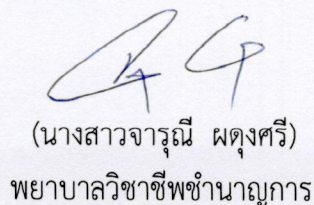 (นางสาวจารุณี ผดุงศรี)
พยาบาลวิชาชีพชำนาญการ